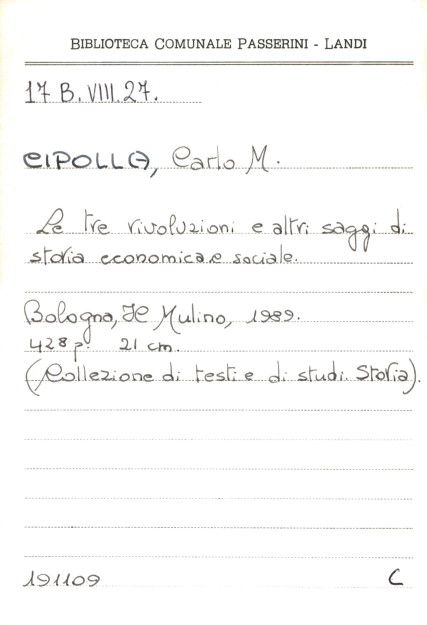 BIBLIOTECA COMUNALE PASSERINI - LANDI
17 B.VIII.27.
CIPOLLA, Carlo M.
Le tre rivoluzioni e altri saggi di
storia economica e sociale.
Bologna, Il Mulino, 1989.
428 p. 21 cm.
(Collezione di testi e di studi. Storia).
191109 C